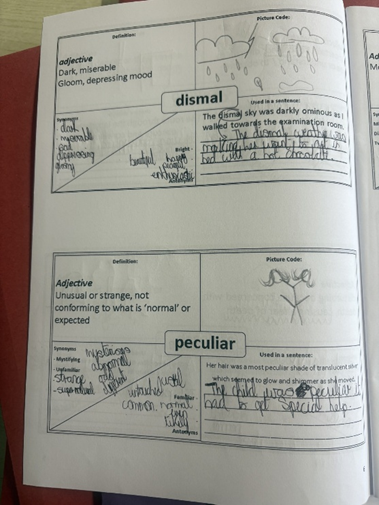 Definition:
Picture Code:
adjective
Dark, miserable
Gloom, depressing mood
dismal
Synonyms
dark
miserable
sad
depressing
gloomy
Bright -
beautiful happy
enthusiastic
Antonyms
Used in a sentence:
The dismal sky was darkly ominous as I
walked towards the examination room.
The dismal weather was
making her want to get in
bed with a hot chocolate.
Definition:
Picture Code:
Adjective
Unusual or strange, not
conforming to what is 'normal' or
expected
peculiar
Synonyms
- Mystifying
- Unfamiliar
strange
- supernatural
mysterious
abnormal
odd
different
usual
Familiar -
common normal
Antonyms
Used in a sentence:
Her hair was a most peculiar shade of translucent silver
which seemed to glow and shimmer as she moved.
The child was peculiar &
had to get special help.